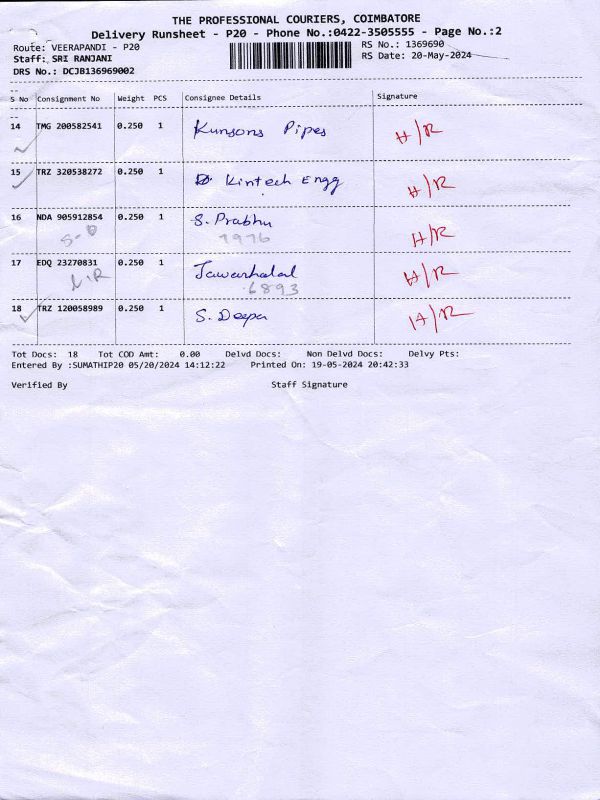 THE PROFESSIONAL COURIERS, COIMBATORE
Delivery Runsheet - P20 - Phone No.:0422-3505555 - Page No.:2
Route: VEERAPANDI - P20 RS No.: 1369690
Staff: SRI RANJANI RS Date: 20-May-2024
DRS No.: DCJB136969002
S No Consignment No Weight PCS Consignee Details Signature
14 TMG 200582541 0.250 1 Kunsons Pipes H/R
15 TRZ 320538272 0.250 1 Kintech Engg H/R
16 NDA 905912854 0.250 1 S. Prabhu H/R
1976
17 EDQ 23270831 0.250 1 Jawarhalal H/R
N.R 6893
18 TRZ 120058989 0.250 1 S. Deepa H/R
Tot Docs: 18 Tot COD Amt: 0.00 Delvd Docs: Non Delvd Docs: Delvy Pts:
Entered By :SUMATHIP20 05/20/2024 14:12:22 Printed On: 19-05-2024 20:42:33
Verified By Staff Signature